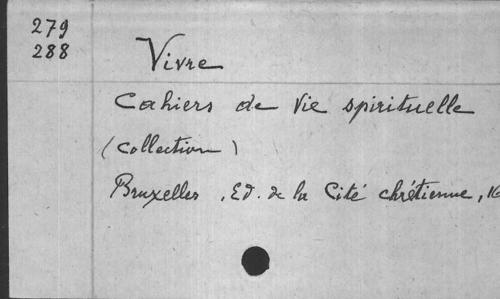 279
288
Vivre
Cahiers de Vie spirituelle
(Collection)
Bruxelles, Ed. de la Cité chrétienne,